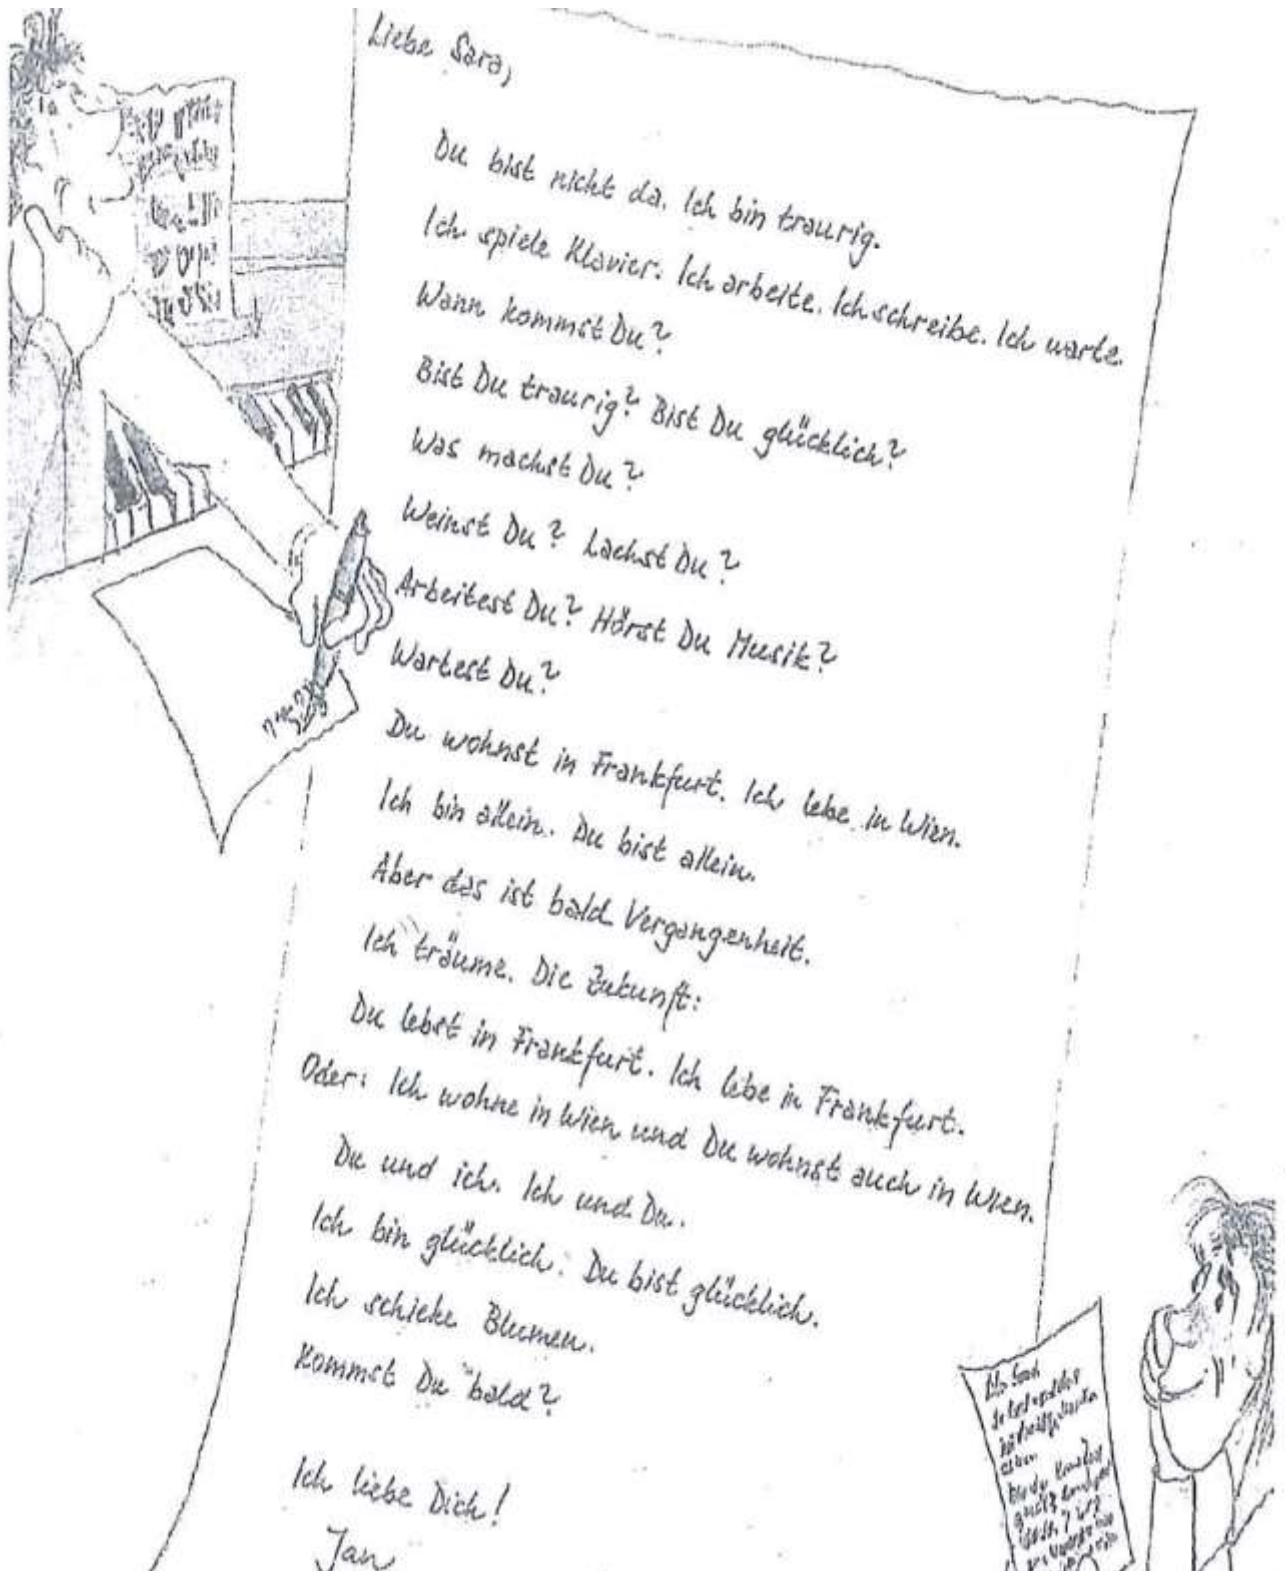 Liebe Sara,
Du bist nicht da. Ich bin traurig.
Ich spiele Klavier. Ich arbeite. Ich schreibe. Ich warte.
Wann kommst Du?
Bist Du traurig? Bist Du glücklich?
Was machst Du?
Weinst Du? Lachst Du?
Arbeitest Du? Hörst Du Musik?
Wartest Du?
Du wohnst in Frankfurt. Ich lebe in Wien.
Ich bin allein. Du bist allein.
Aber das ist bald Vergangenheit.
Ich träume. Die Zukunft:
Du lebst in Frankfurt. Ich lebe in Frankfurt.
Oder: Ich wohne in Wien und Du wohnst auch in Wien.
Du und ich. Ich und Du.
Ich bin glücklich. Du bist glücklich.
Ich schicke Blumen.
Kommst Du bald?
Ich liebe Dich!
Jan